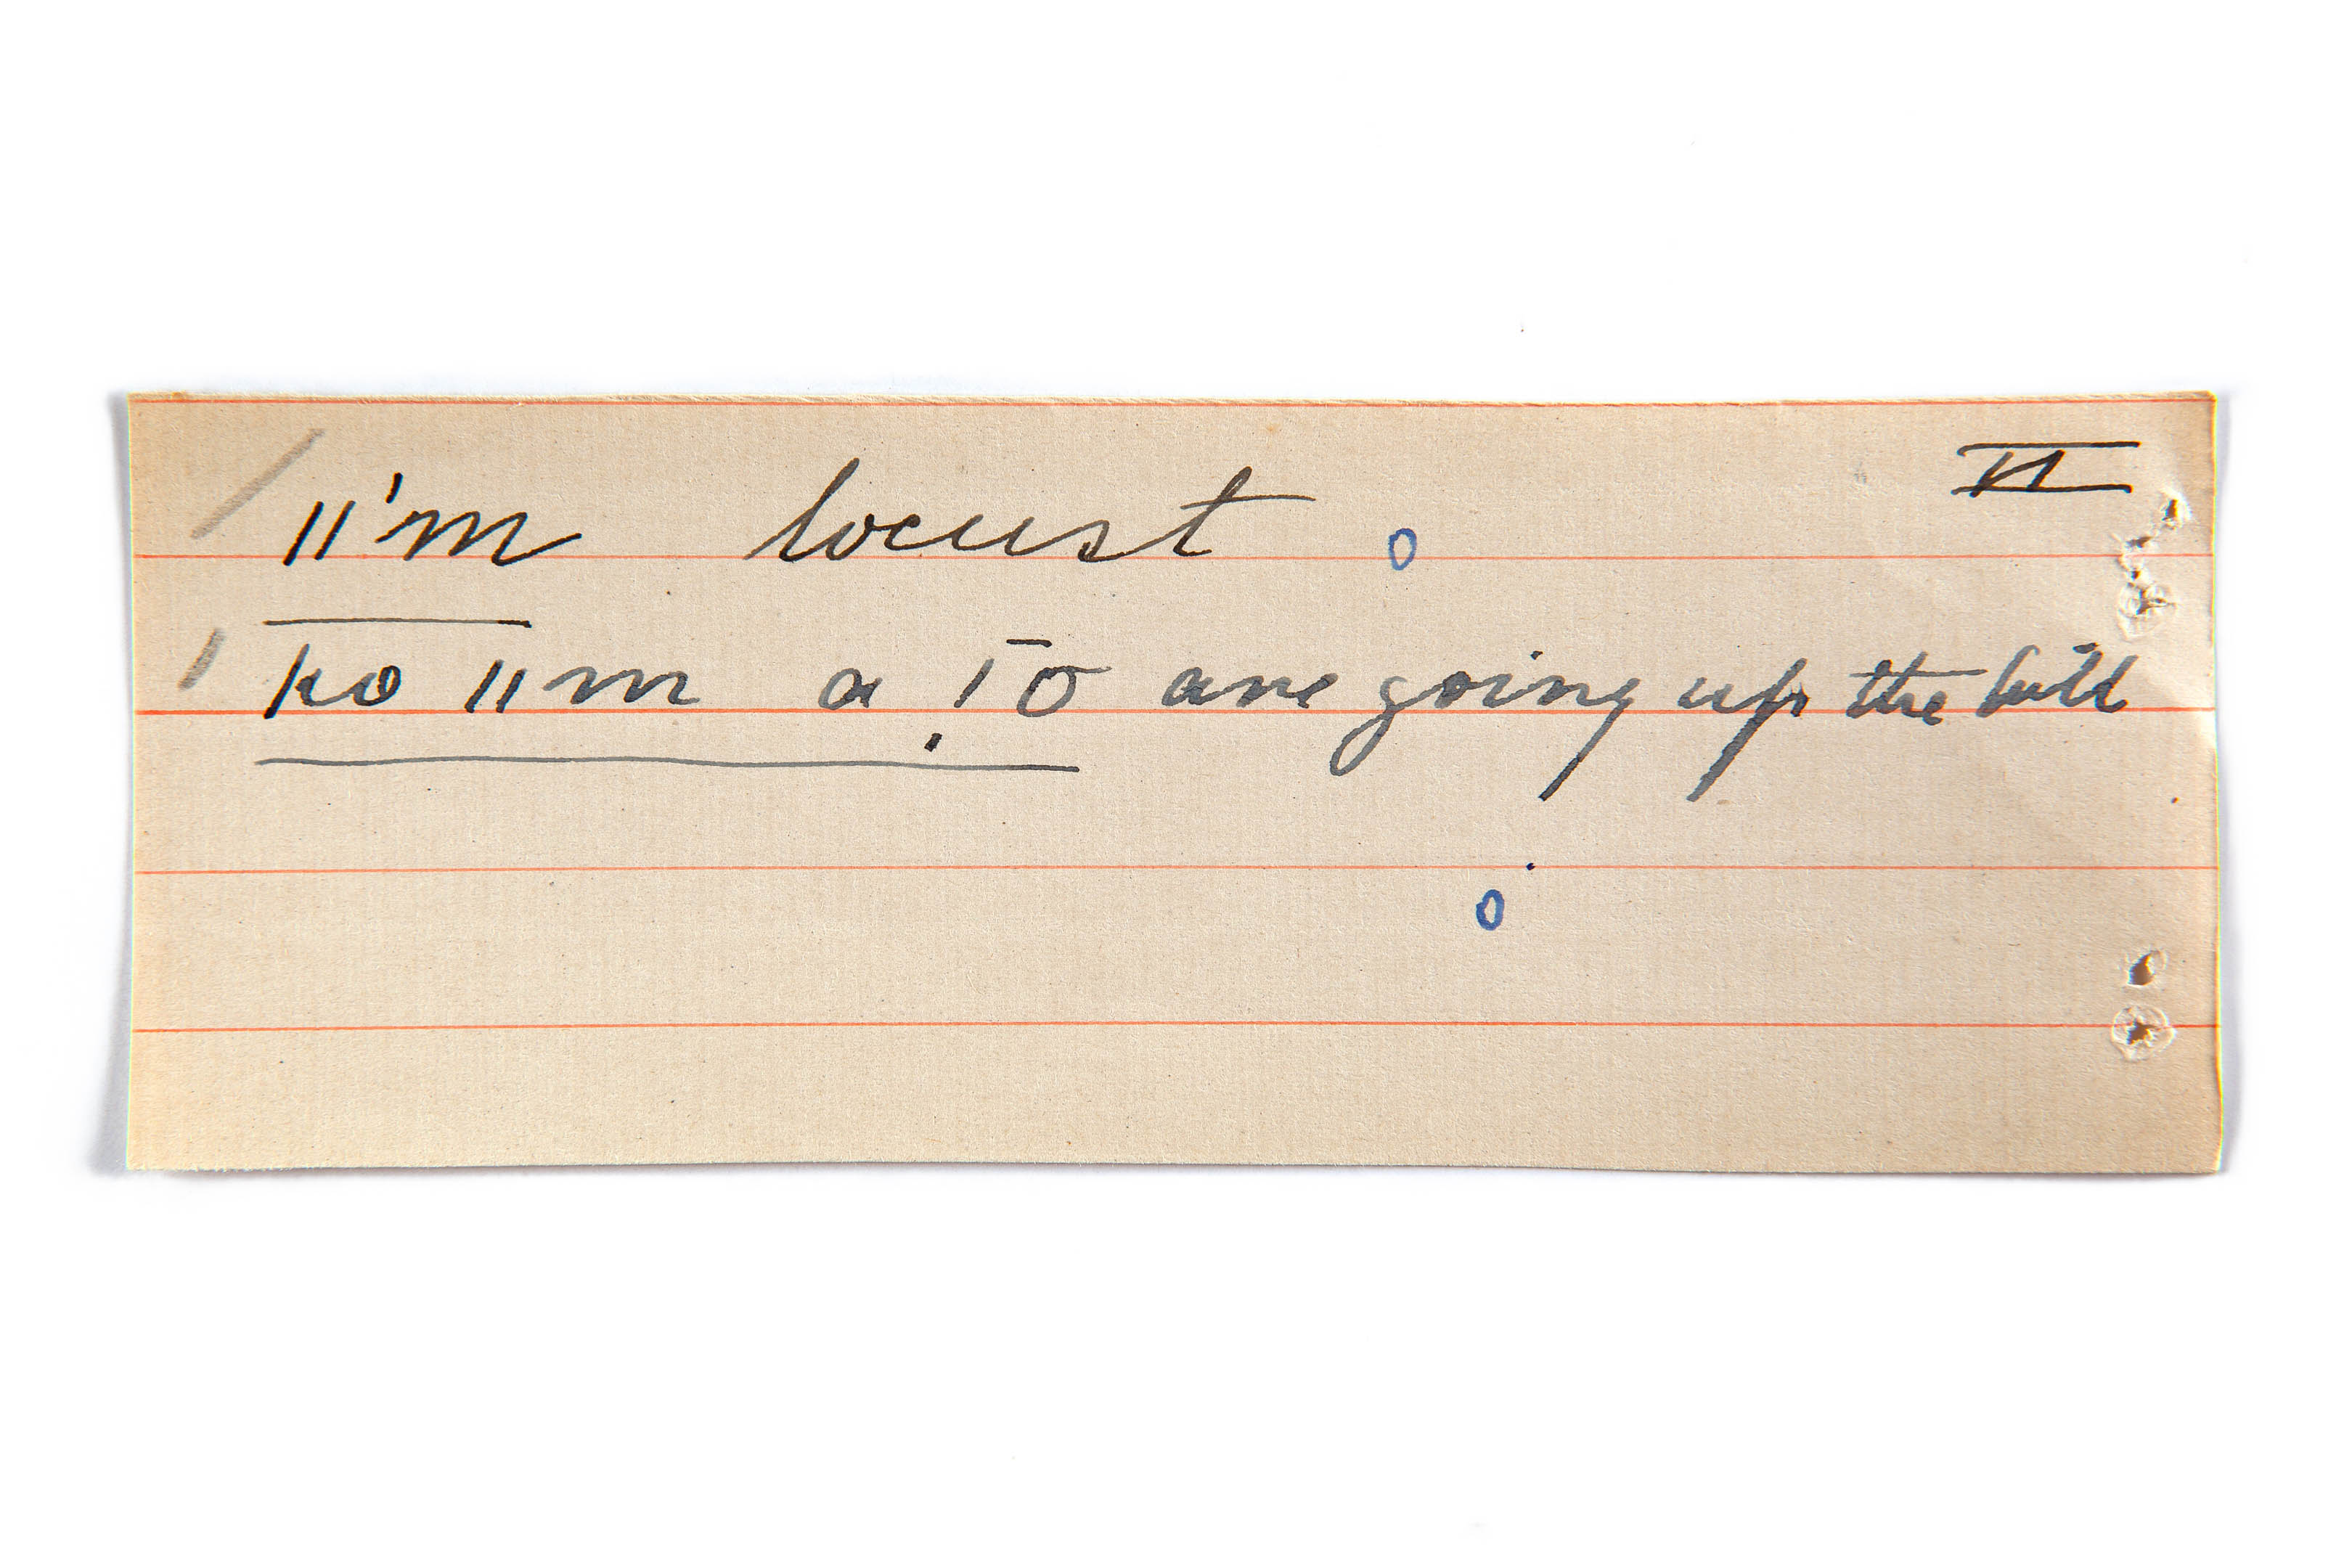 ǁ'm locust VI
ko ǁm a ¯!o are going up the hill